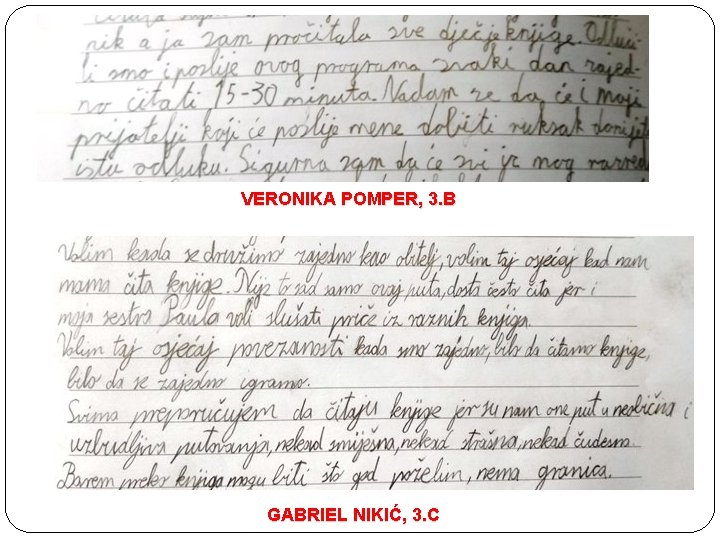 nik a ja sam pročitala sve dječje knjige. Odluči-
li smo i poslije ovog programa svaki dan zajed-
no čitati 15-30 minuta. Nadam se da će i moji
prijatelji koji će poslije mene dobiti ruksak donijet
istu odluku. Sigurna sam da će svi iz mog razred
VERONIKA POMPER, 3. B
Volim kada se družimo zajedno kao obitelj, volim taj osjećaj kad nam
mama čita knjige. Nije to sad samo ovaj puta, dosta često čita jer i
moja sestra Paula voli slušati priče iz raznih knjiga.
Volim taj osjećaj povezanosti kada smo zajedno, bilo da čitamo knjige,
bilo da se zajedno igramo.
Svima preporučujem da čitaju knjige jer su nam one put u neobična i
uzbudljiva putovanja, nekad smiješna, nekad strašna, nekad čudesna.
Barem preko knjiga mogu biti što god poželim, nema granica.
GABRIEL NIKIĆ, 3. C